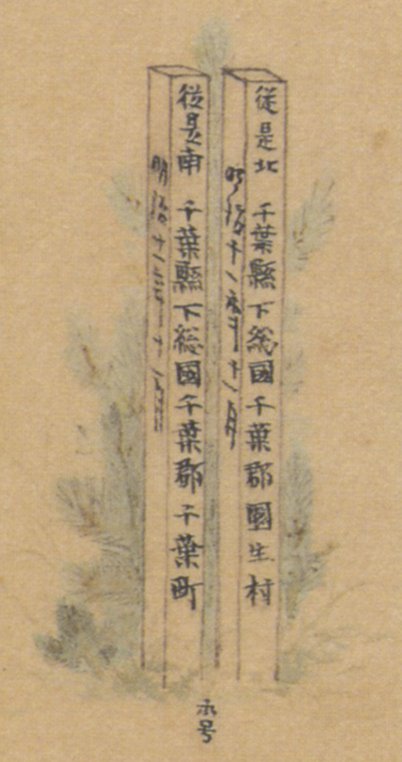 從是北 千葉縣下総國千葉郡園生村
明治十一年十一月
従是南 千葉縣下総國千葉郡千葉町
明治十一年十一月
ホ号